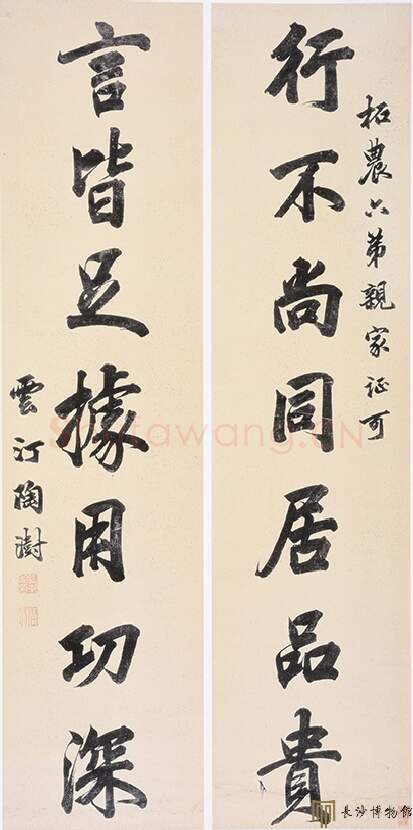 柘農六弟親家证可
行不尚同居品貴
言皆足據用功深
雲汀陶澍
長沙博物館